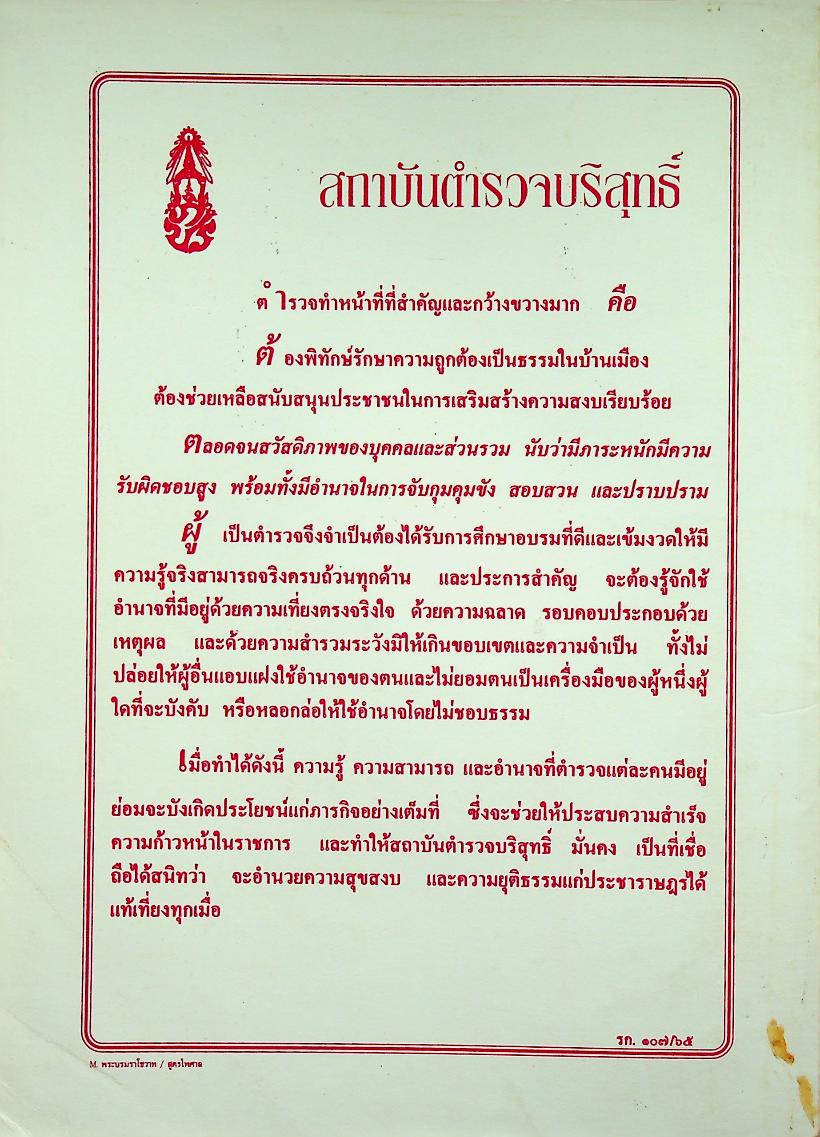 สถาบันตำรวจบริสุทธิ์
ตำรวจทำหน้าที่ที่สำคัญและกว้างขวางมาก คือ
ต้องพิทักษ์รักษาความถูกต้องเป็นธรรมในบ้านเมือง
ต้องช่วยเหลือสนับสนุนประชาชนในการเสริมสร้างความสงบเรียบร้อย
ตลอดจนสวัสดิภาพของบุคคลและส่วนรวม นับว่ามีภาระหนักมีความ
รับผิดชอบสูง พร้อมทั้งมีอำนาจในการจับกุมคุมขัง สอบสวน และปราบปราม
ผู้ เป็นตำรวจจึงจำเป็นต้องได้รับการศึกษาอบรมที่ดีและเข้มงวดให้มี
ความรู้จริงสามารถจริงครบถ้วนทุกด้าน และประการสำคัญ จะต้องรู้จักใช้
อำนาจที่มีอยู่ด้วยความเที่ยงตรงจริงใจ ด้วยความฉลาด รอบคอบประกอบด้วย
เหตุผล และด้วยความสำรวมระวังมิให้เกินขอบเขตและความจำเป็น ทั้งไม่
ปล่อยให้ผู้อื่นแอบแฝงใช้อำนาจของตนและไม่ยอมตนเป็นเครื่องมือของผู้หนึ่งผู้
ใดที่จะบังคับ หรือหลอกล่อให้ใช้อำนาจโดยไม่ชอบธรรม
เมื่อทำได้ดังนี้ ความรู้ ความสามารถ และอำนาจที่ตำรวจแต่ละคนมีอยู่
ย่อมจะบังเกิดประโยชน์แก่ภารกิจอย่างเต็มที่ ซึ่งจะช่วยให้ประสบความสำเร็จ
ความก้าวหน้าในราชการ และทำให้สถาบันตำรวจบริสุทธิ์ มั่นคง เป็นที่เชื่อ
ถือได้สนิทว่า จะอำนวยความสุขสงบ และความยุติธรรมแก่ประชาราษฎรได้
แท้เที่ยงทุกเมื่อ
รก. ๑๐๗/๖๕
M. พระบรมราโชวาท / สูตรไพศาล